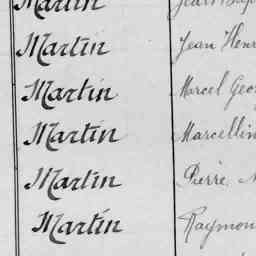 Martin
Martin Jean Henr
Martin Marcel Geor
Martin Marcellin
Martin Pierre
Martin Raymon